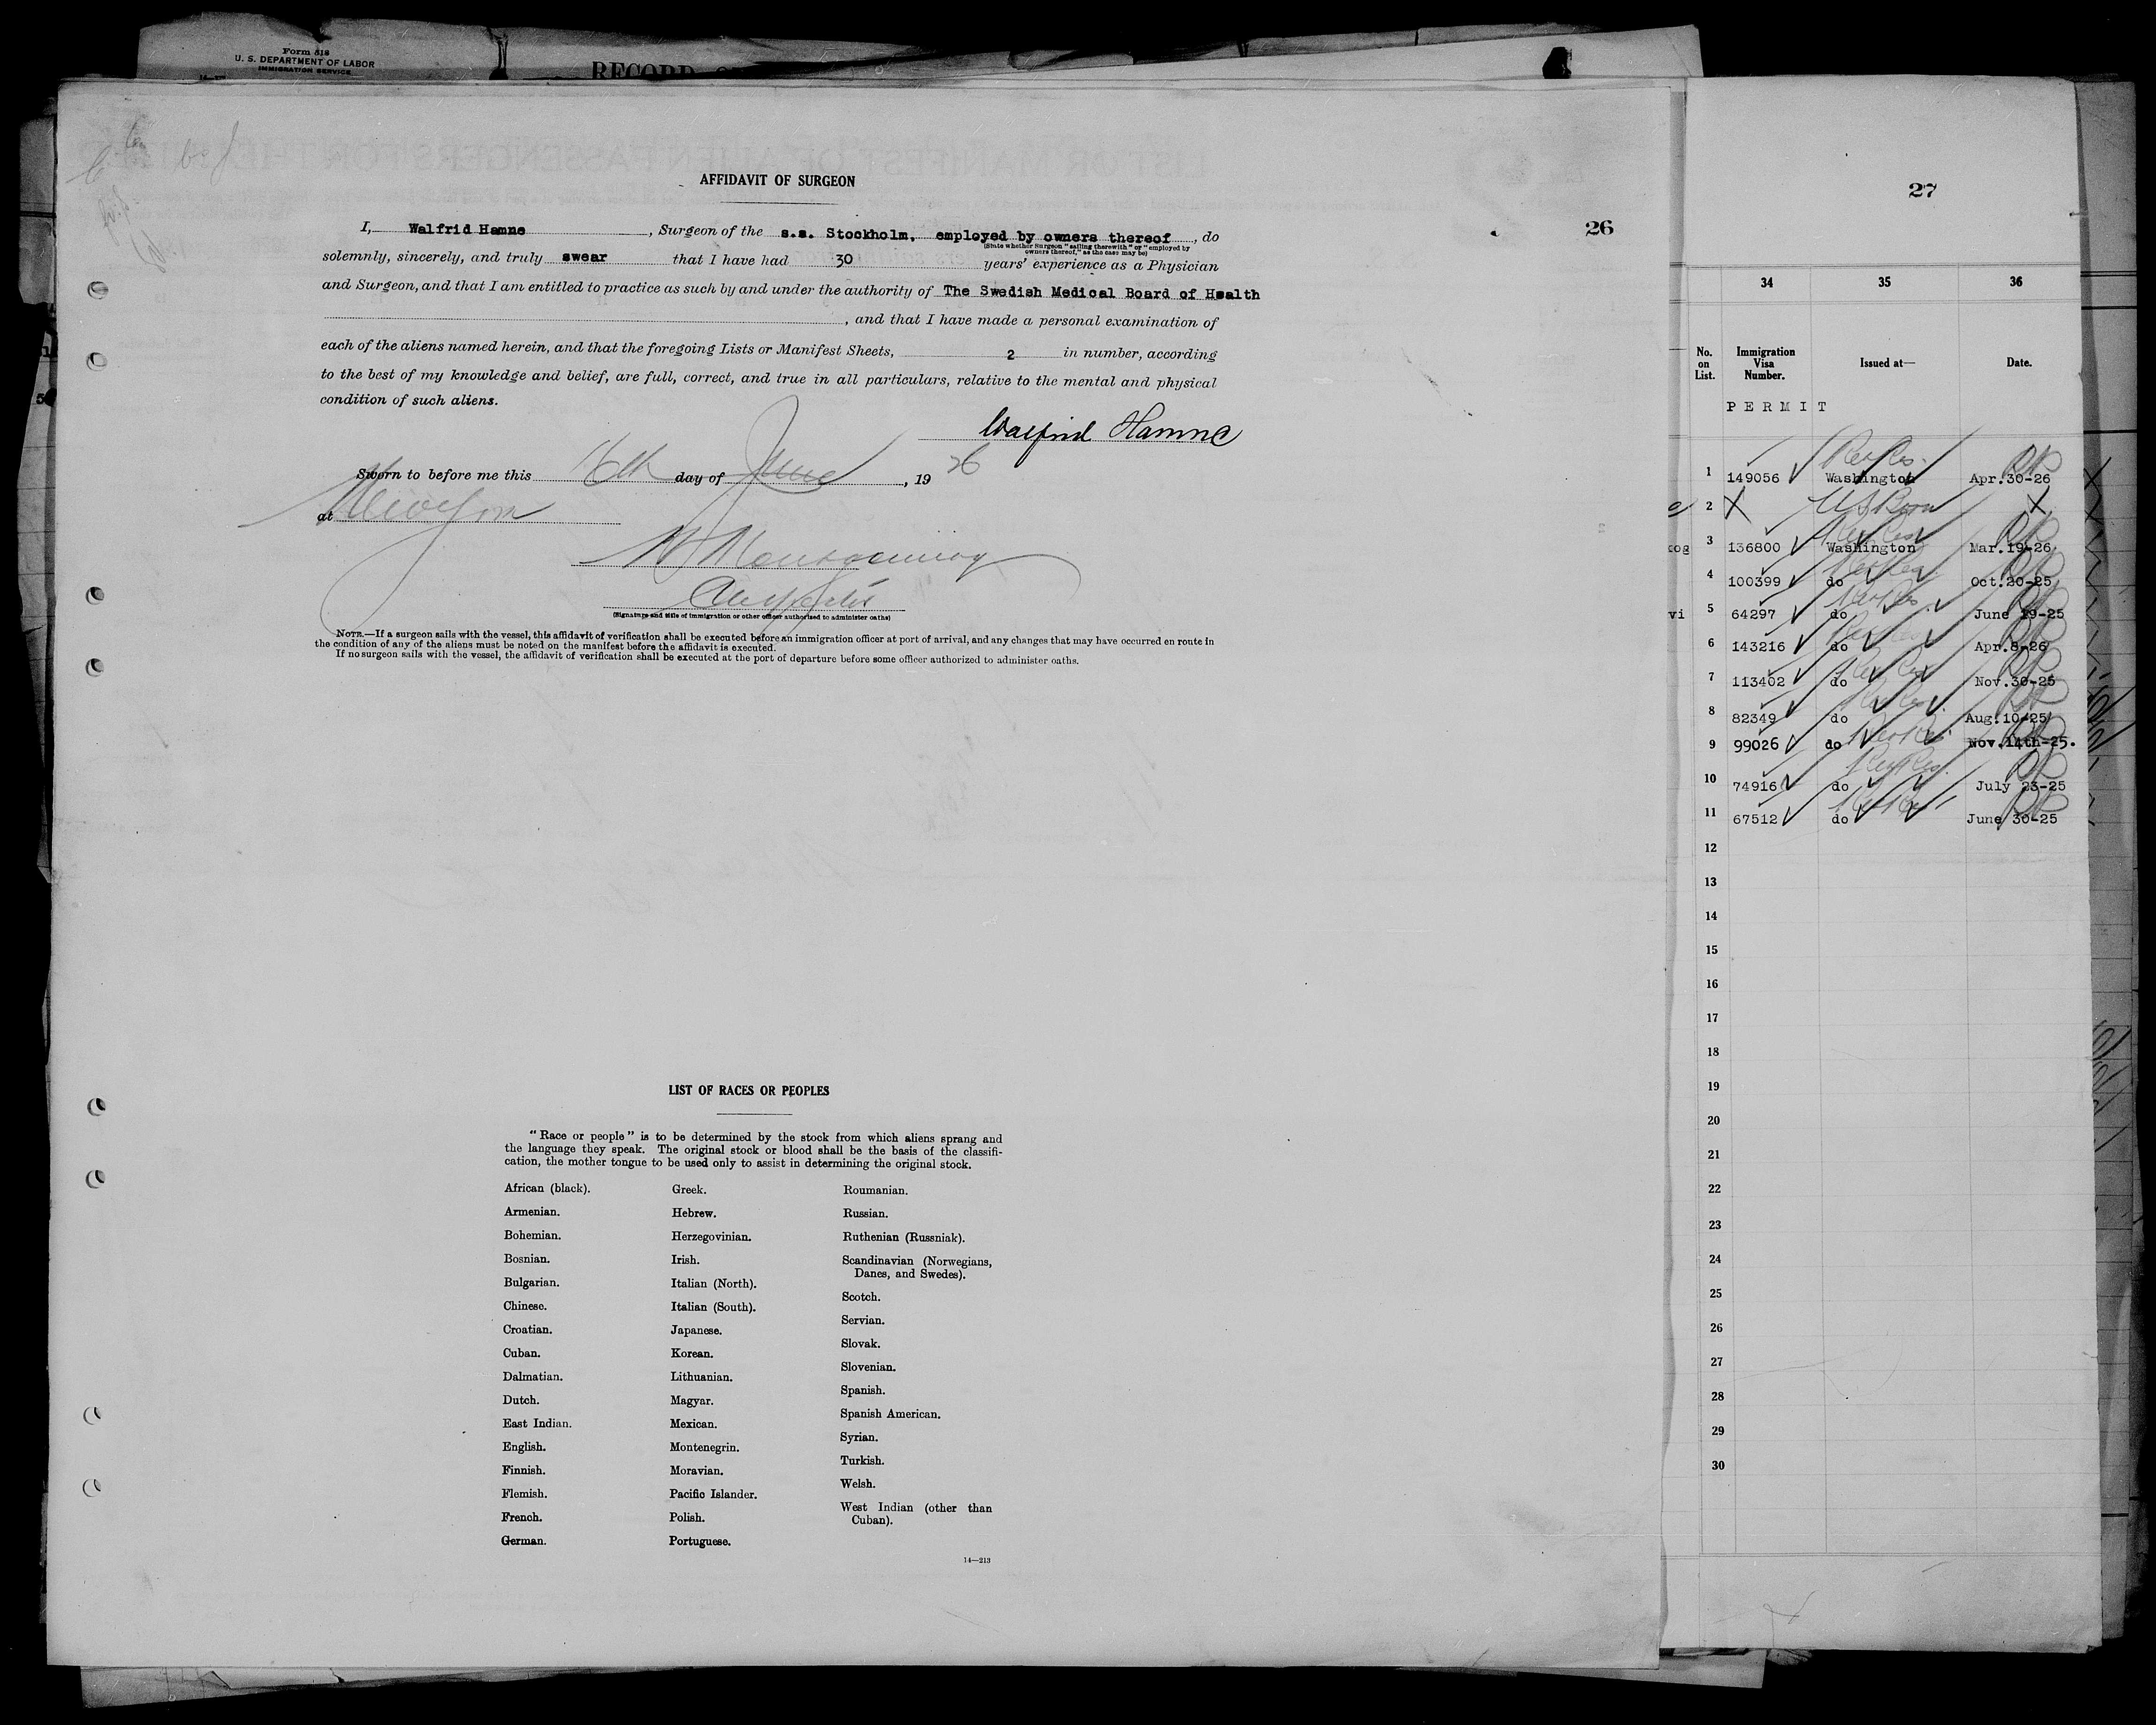 Form 518
U. S. DEPARTMENT OF LABOR
IMMIGRATION SERVICE
RECORD
AFFIDAVIT OF SURGEON
26
I, Walfrid Hamne, Surgeon of the s.s. Stockholm, employed by owners thereof, do
(State whether Surgeon "sailing therewith" or "employed by
owners thereof," as the case may be)
solemnly, sincerely, and truly swear that I have had 30 years' experience as a Physician
and Surgeon, and that I am entitled to practice as such by and under the authority of The Swedish Medical Board of Health
, and that I have made a personal examination of
each of the aliens named herein, and that the foregoing Lists or Manifest Sheets, 2 in number, according
to the best of my knowledge and belief, are full, correct, and true in all particulars, relative to the mental and physical
condition of such aliens.
Walfrid Hamne
Sworn to before me this 16th day of June, 1926
at
(Signature and title of immigration or other officer authorized to administer oaths)
NOTE.—If a surgeon sails with the vessel, this affidavit of verification shall be executed before an immigration officer at port of arrival, and any changes that may have occurred en route in
the condition of any of the aliens must be noted on the manifest before the affidavit is executed.
If no surgeon sails with the vessel, the affidavit of verification shall be executed at the port of departure before some officer authorized to administer oaths.
LIST OF RACES OR PEOPLES
"Race or people" is to be determined by the stock from which aliens sprang and
the language they speak. The original stock or blood shall be the basis of the classifi-
cation, the mother tongue to be used only to assist in determining the original stock.
African (black).
Armenian.
Bohemian.
Bosnian.
Bulgarian.
Chinese.
Croatian.
Cuban.
Dalmatian.
Dutch.
East Indian.
English.
Finnish.
Flemish.
French.
German.
Greek.
Hebrew.
Herzegovinian.
Irish.
Italian (North).
Italian (South).
Japanese.
Korean.
Lithuanian.
Magyar.
Mexican.
Montenegrin.
Moravian.
Pacific Islander.
Polish.
Portuguese.
Roumanian.
Russian.
Ruthenian (Russniak).
Scandinavian (Norwegians,
Danes, and Swedes).
Scotch.
Servian.
Slovak.
Slovenian.
Spanish.
Spanish American.
Syrian.
Turkish.
Welsh.
West Indian (other than
Cuban).
14—213
27
34 35 36
No. on List. Immigration Visa Number. Issued at— Date.
PERMIT
1 149056 Washington Apr.30-26
2 X US Born X
3 136800 Washington Mar.19-26
4 100399 do Oct.20-25
5 64297 do June 19-25
6 143216 do Apr.8-26
7 113402 do Nov.30-25
8 82349 do Aug.10-25
9 99026 do Nov.14th-25.
10 74916 do July 23-25
11 67512 do June 30-25
12
13
14
15
16
17
18
19
20
21
22
23
24
25
26
27
28
29
30